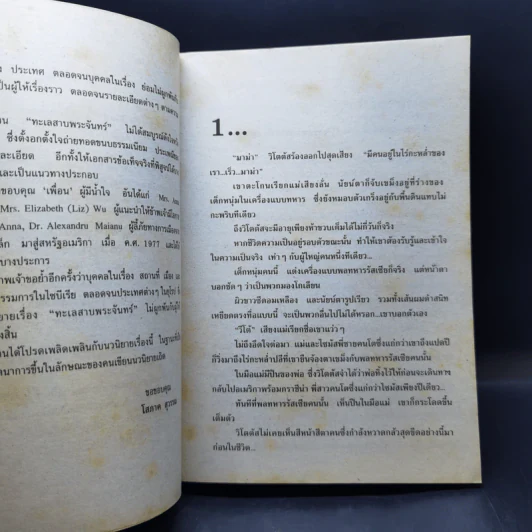 ประเทศ ตลอดจนบุคคลในเรื่อง ย่อมไม่ผูกพันกับ
เป็นผู้ให้เรื่องราว ตลอดจนรายละเอียดต่างๆ ตามความ
"ทะเลสาบพระจันทร์" ไม่ได้สมบูรณ์
ซึ่งตั้งอกตั้งใจถ่ายทอดขนบธรรมเนียม ประเพณี
ละเอียด อีกทั้งให้เอกสารข้อเท็จจริงที่
และเป็นแนวทางประกอบ
ขอบคุณ "เพื่อน" ผู้มีน้ำใจ อันได้แก่ Mrs.
Mrs. Elizabeth (Liz) Wu ผู้แนะนำให้ข้าพเจ้า
Anna, Dr. Alexandru Maianu ผู้ลี้ภัยทางการเมือง
มาสู่สหรัฐอเมริกา เมื่อ ค.ศ. 1977 และได้
บางประการ
พเจ้าขอย้ำอีกครั้งว่าบุคคลในเรื่อง สถานที่ เมือง
รรมการในไซบีเรีย ตลอดจนประเทศต่างๆ ในยุโรป
ยายเรื่อง "ทะเลสาบพระจันทร์" ไม่ผูกพันกับผู้ใด
งสิ้น
านได้โปรดเพลิดเพลินกับนวนิยายเรื่องนี้ ในฐานะที่
นาการขึ้นในลักษณะของคนเขียนนวนิยาย
ขอขอบคุณ
โสภาค สุวรรณ
1...
"มาม่า" วิโตตัสร้องออกไปสุดเสียง "มีคนอยู่ในไร่กะหล่ำของ
เรา..เร็ว...มาม่า"
เขาตะโกนเรียกแม่เสียงลั่น นัยน์ตาก็จับเขม็งอยู่ที่ร่างของ
เด็กหนุ่มในเครื่องแบบทหาร ซึ่งยังหมอบตัวเกร็งอยู่กับพื้นดินแทบไม่
กะพริบทีเดียว
ถึงวิโตตัสจะมีอายุเพียงห้าขวบเต็มได้ไม่กี่วันก็จริง
หากชีวิตความเป็นอยู่รอบตัวขณะนั้น ทำให้เขาต้องรับรู้และเข้าใจ
ในความเป็นจริง เท่าๆ กับผู้ใหญ่คนหนึ่งทีเดียว...
เด็กหนุ่มคนนี้ แต่งเครื่องแบบพลทหารรัสเซียก็จริง แต่หน้าตา
บอกชัด ๆ ว่าเป็นพวกมองโกเลียน
ผิวขาวซีดอมเหลือง และนัยน์ตารูปเรียว รวมทั้งเส้นผมดำสนิท
เหยียดตรงทื่อแบบนี้ จะเป็นพวกอื่นไปไม่ได้หรอก...เขาบอกตัวเอง
"วีโต้" เสียงแม่เรียกชื่อเขาแว่วๆ
ไม่ถึงอึดใจต่อมา แม่และไซมัสพี่ชายคนโตซึ่งแก่กว่าเขาถึงแปดปี
ก็วิ่งมาถึงไร่กะหล่ำปลีที่เขายืนจ้องตาเขม็งกับพลทหารรัสเซียคนนั้น
ในมือแม่มีปืนของพ่อ ซึ่งวิโตตัสจำได้ว่าพ่อทิ้งไว้ให้ก่อนจะเดินทาง
กลับไปอเมริกาพร้อมคราชิน่า พี่สาวคนโตซึ่งแก่กว่าไซมัสเพียงปีเดียว...
ทันทีที่พลทหารรัสเซียคนนั้น เห็นปืนในมือแม่ เขาก็กระโดดขึ้น
เต็มตัว
วิโตตัสไม่เคยเห็นสีหน้าสีตาคนซึ่งกำลังหวาดกลัวสุดขีดอย่างนี้มา
ก่อนในชีวิต...